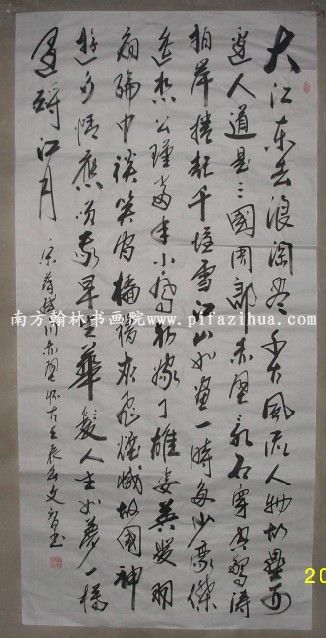 大江东去浪淘尽千古风流人物故垒西
邊人道是三國周郎赤壁乱石穿空驚涛
拍岸捲起千堆雪江山如畫一時多少豪傑
遥想公瑾当年小喬初嫁了雄姿英發羽
扇綸巾談笑间檣橹灰飛煙滅故國神
遊多情應笑我早生華髮人生如夢一樽
還酹江月
宋苏轼词赤壁怀古壬辰年文
南方翰林书画院www.pifazihua.com
20